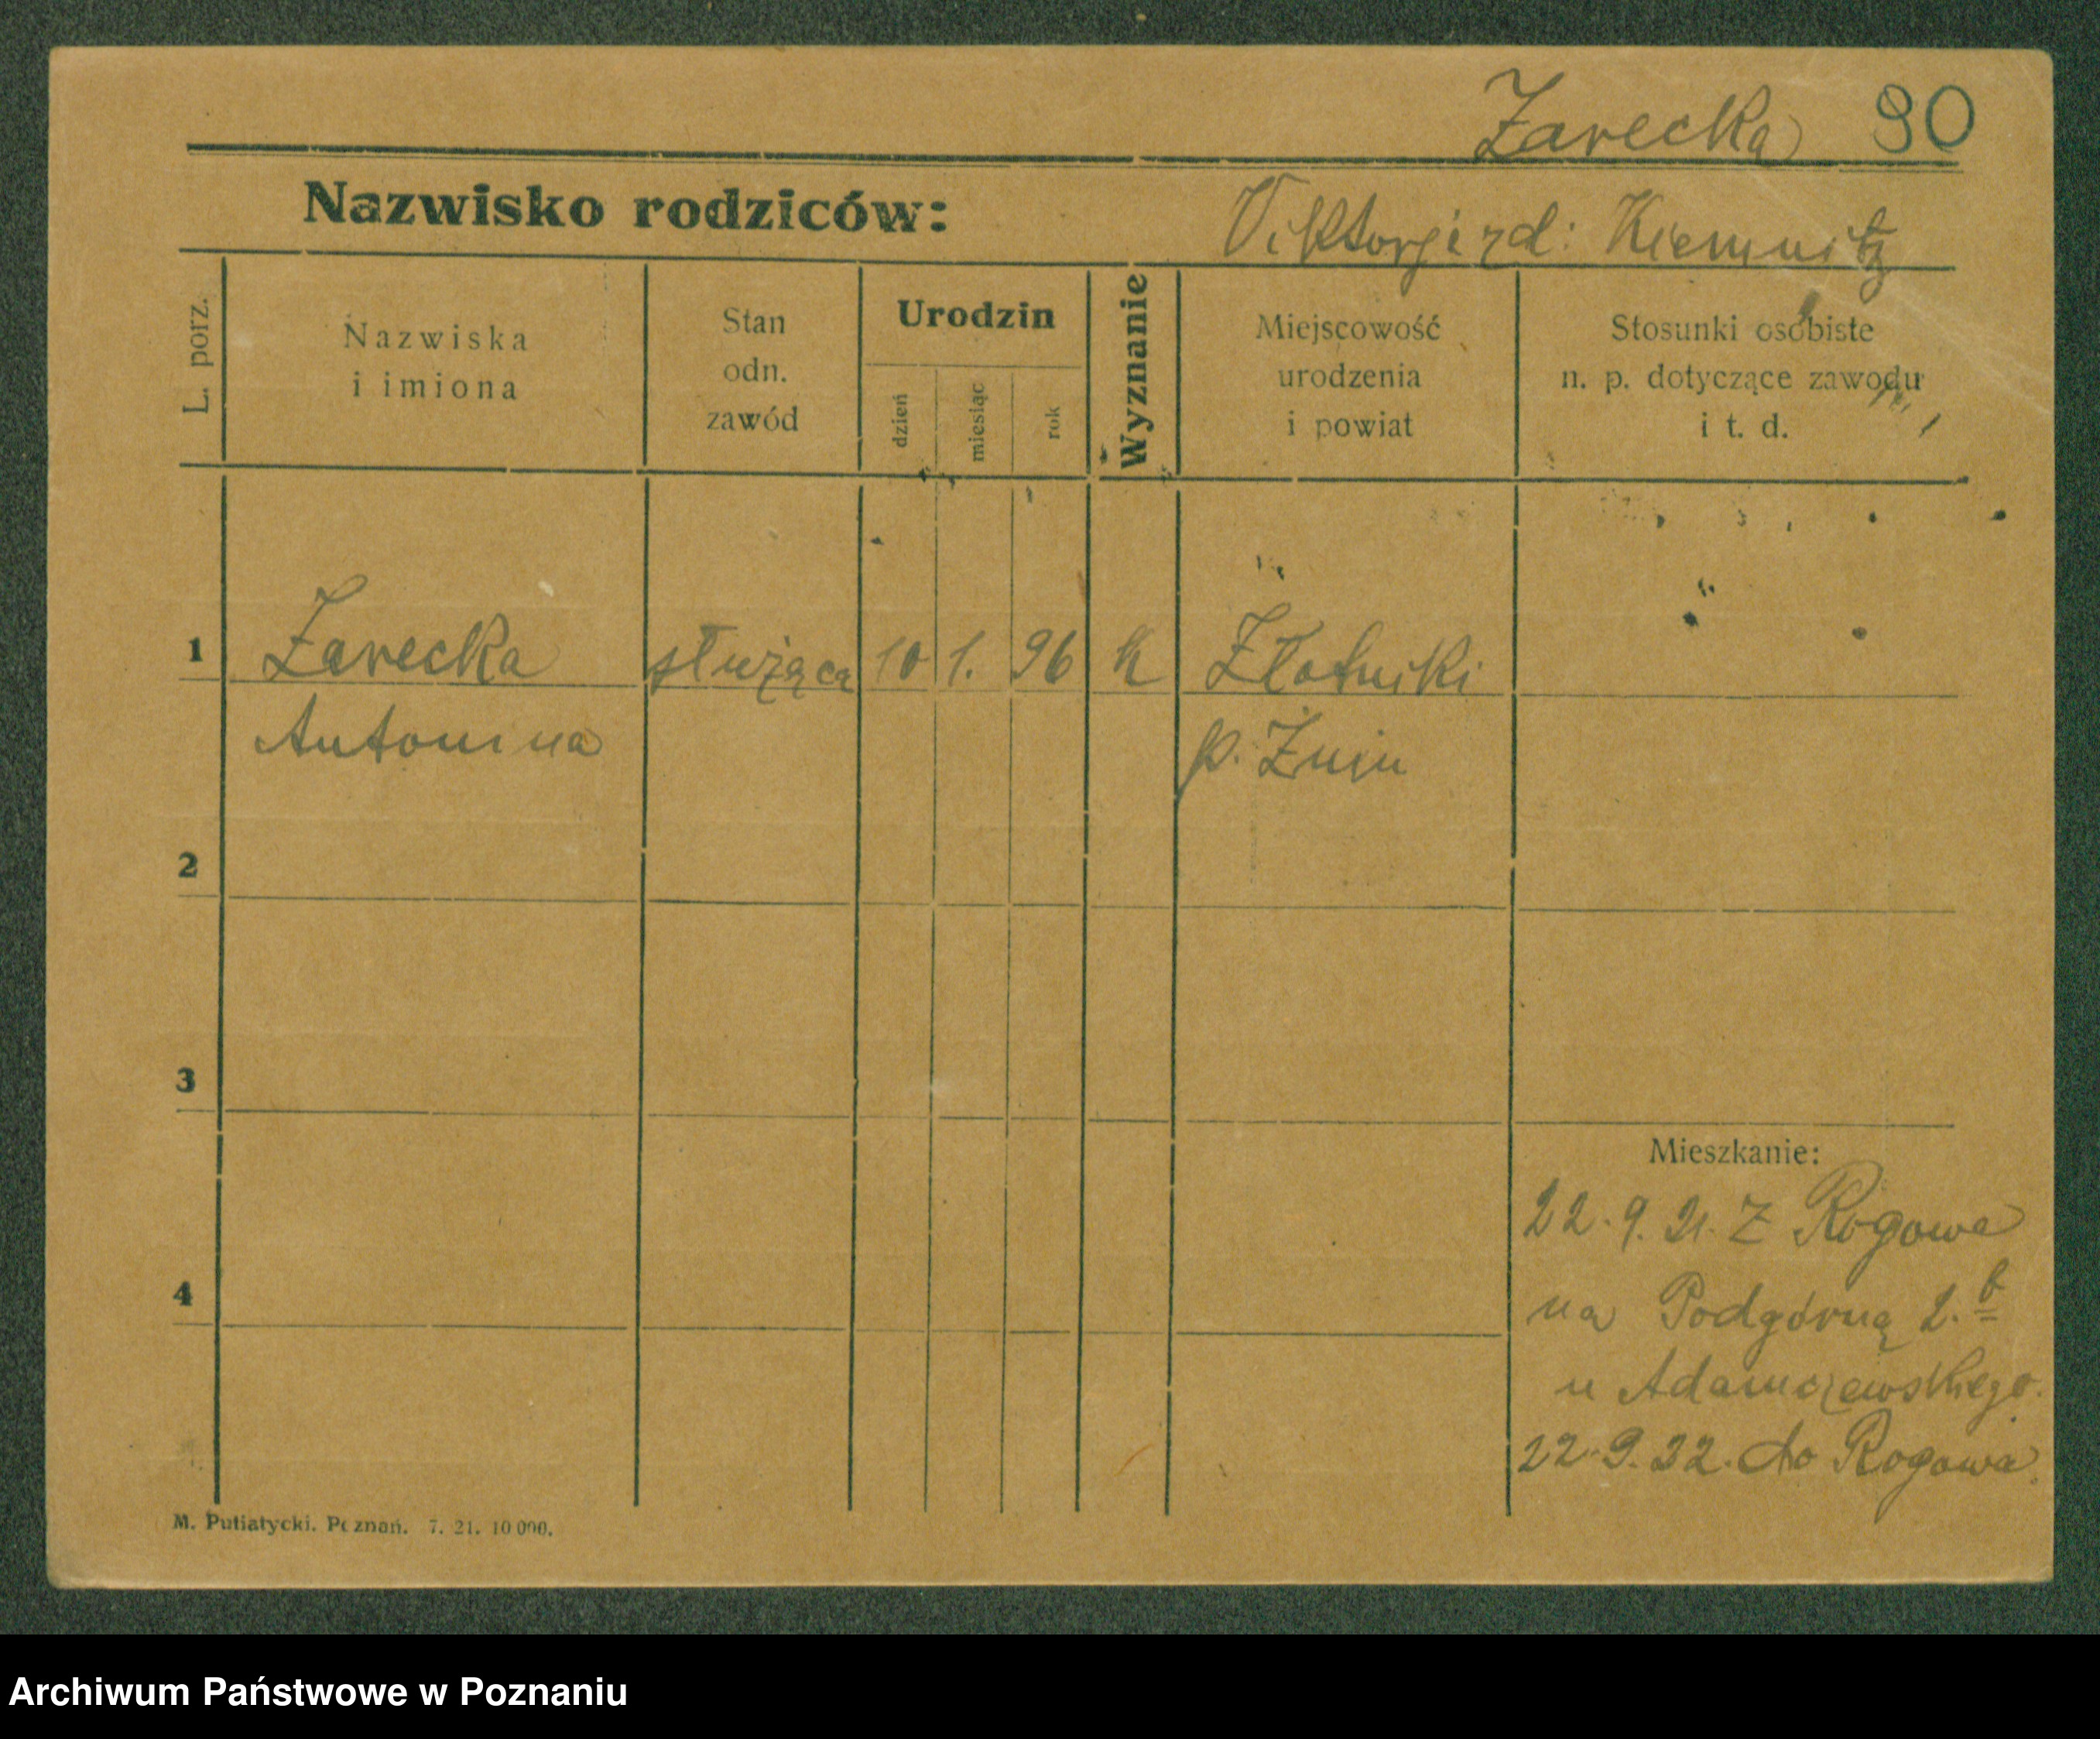 Zarecka 90
Nazwisko rodziców: Viktorji zd: Kiemnitz
L. porz.
Nazwiska
i imiona
Stan
odn.
zawód
Urodzin
dzień
miesiąc
rok
Wyznanie
Miejscowość
urodzenia
i powiat
Stosunki osobiste
n. p. dotyczące zawodu
i t. d.
1 Zarecka służąca 10 1. 96 k Złotniki
Antonina p. Żnin
2
3
Mieszkanie:
22. 9. 21. z Rogowa
4
na Podgórną 2. b
u Adamczewskiego.
22. 9. 22. do Rogowa.
M. Putiatycki. Poznań. 7. 21. 10 000.
Archiwum Państwowe w Poznaniu